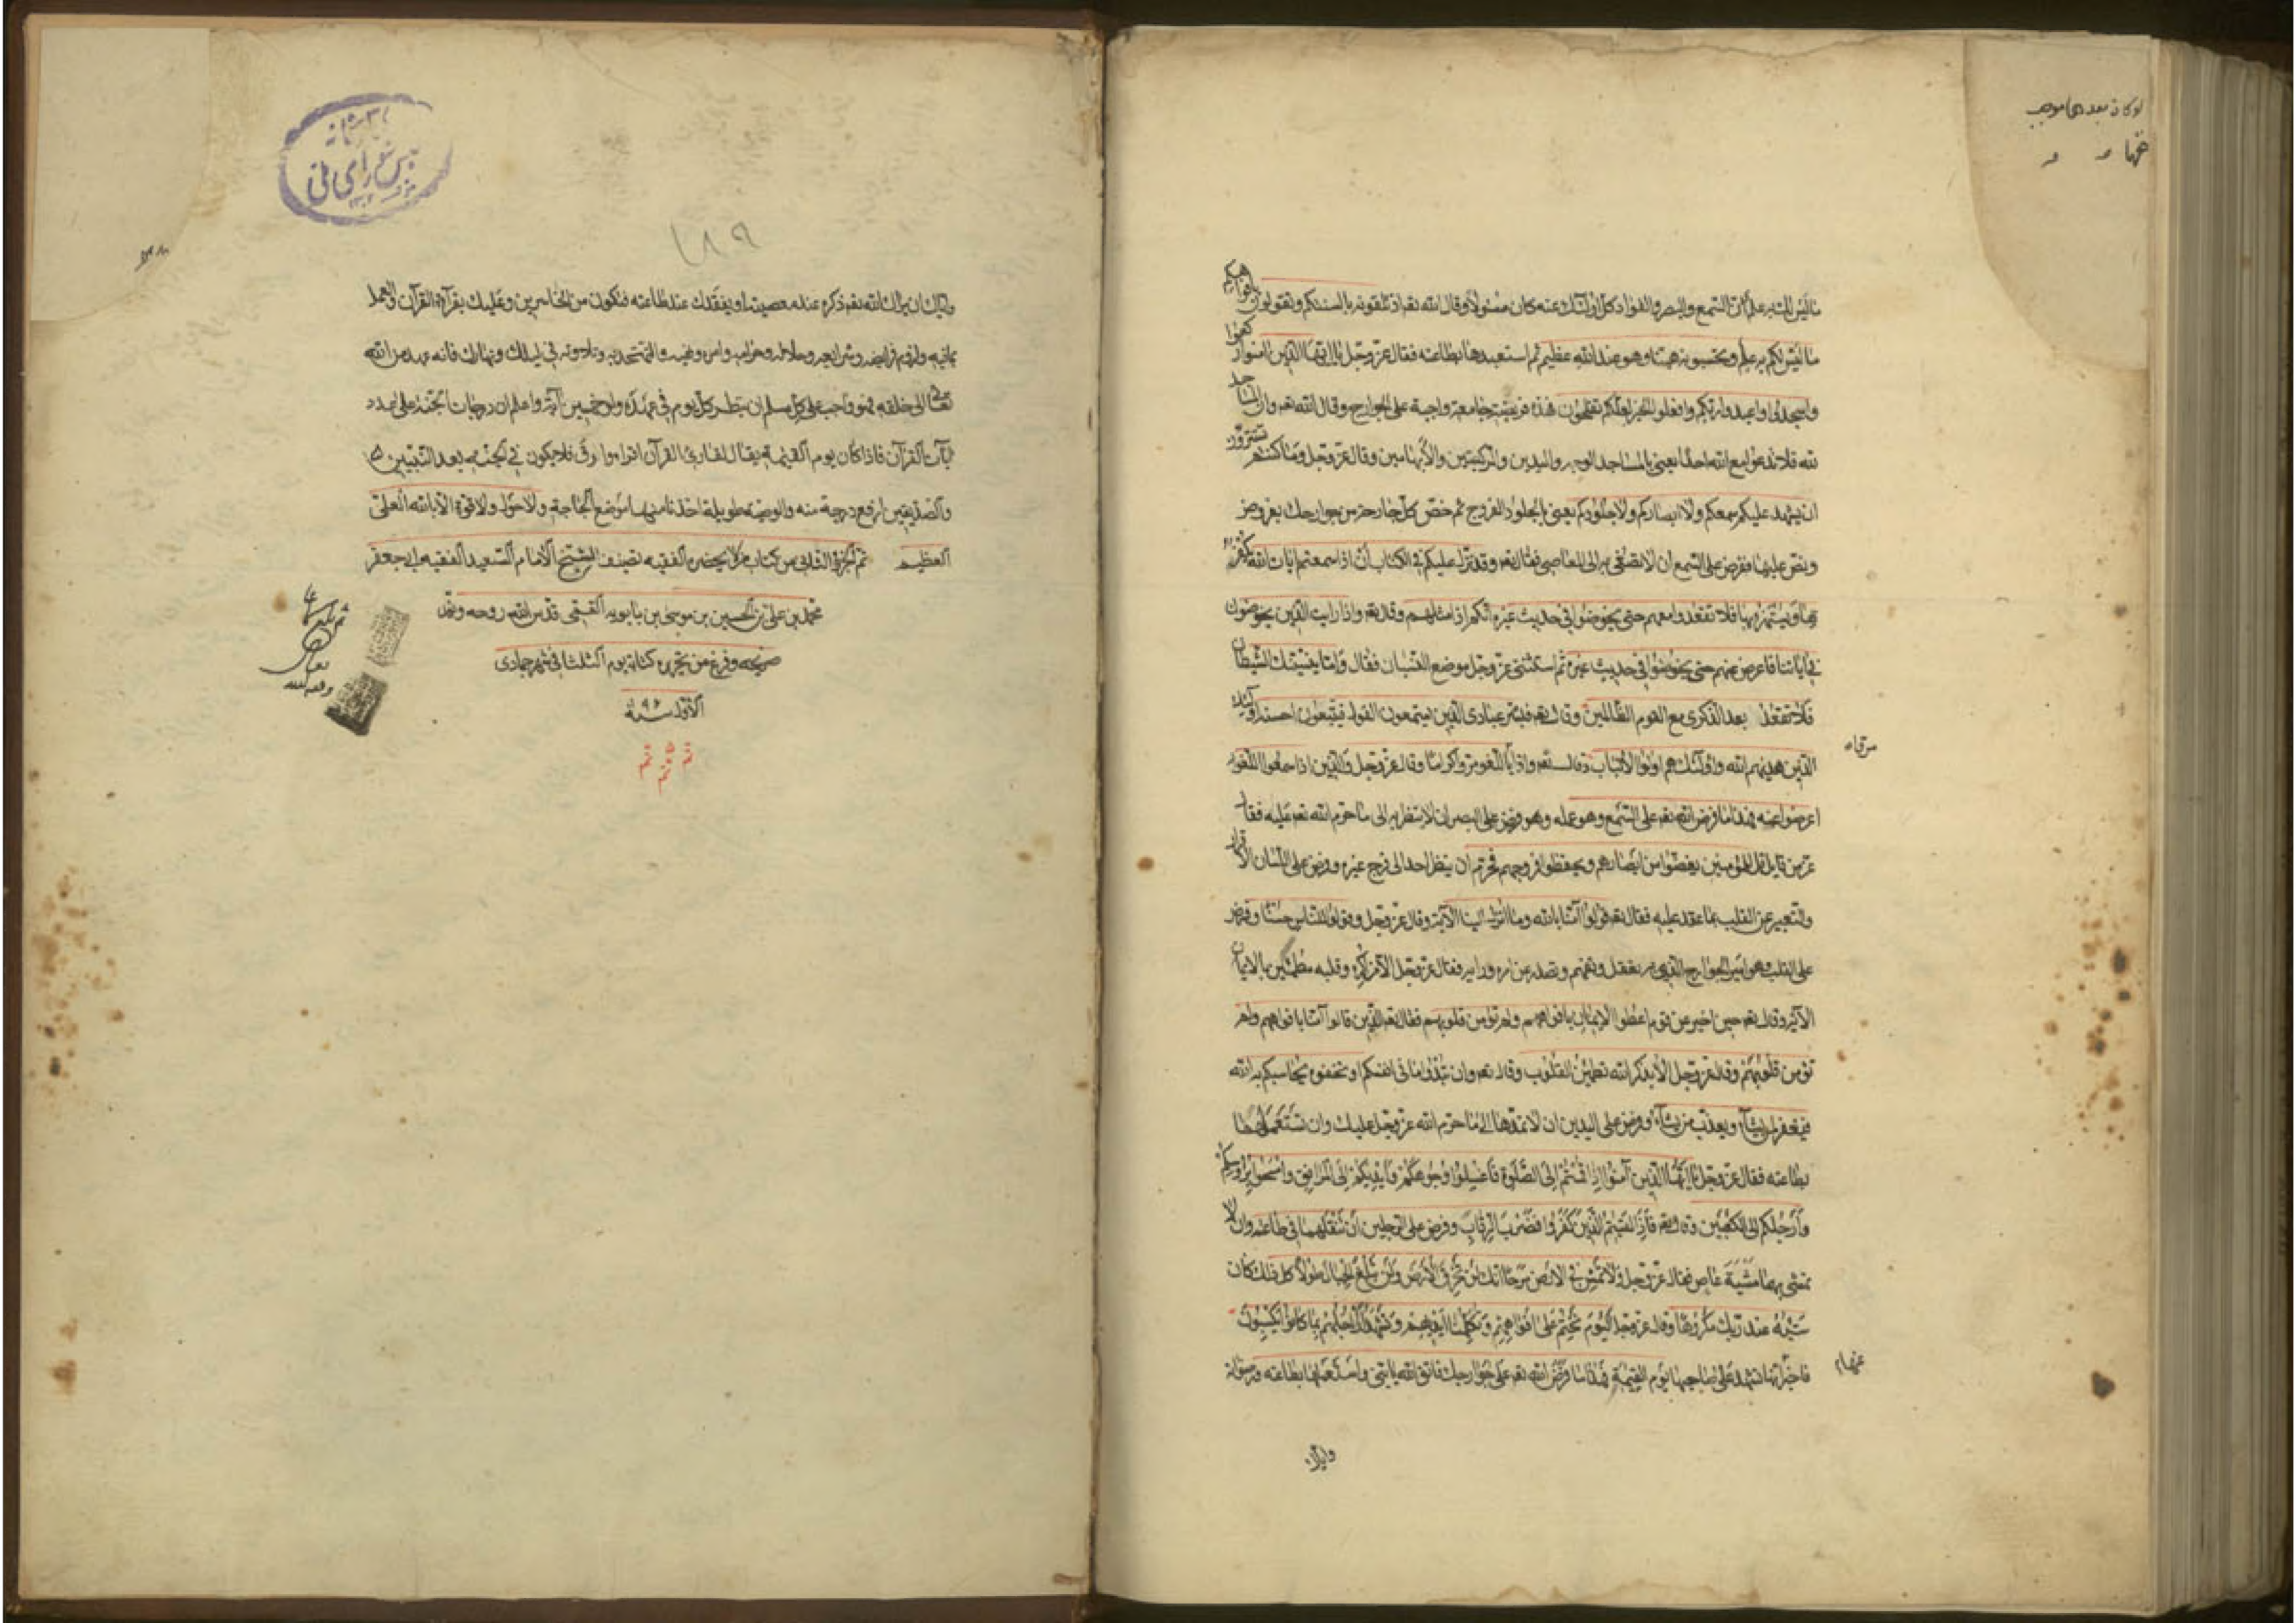 ما ليس لك به علم ان السمع والبصر والفواد كل اولئك عنه كان مسئولا وقال الله تعم اذ تلقونه بالسنتكم وتقولون بافواهكم
ما ليس لكم به علم وتحسبونه هينا وهو عند الله عظيم ثم استعبدها بطاعته فقال عز وجل يا ايها الذين امنوا اركعوا
واسجدوا واعبدوا ربكم وافعلوا الخير لعلكم تفلحون فهذه فريضة جامعة واجبة على الجوارح وقال الله تعم وان المساجد
لله فلا تدعوا مع الله احدا يعنى بالمساجد الوجه واليدين والركبتين والابهامين وقال عز وجل وما كنتم تستترون
ان يشهد عليكم سمعكم ولا ابصاركم ولا جلودكم يعنى بالجلود الفروج ثم خص كل جارحة من جوارحك بفرض
ونص عليها ففرض على السمع ان لا تصغى به الى المعاصى فقال تعم وقد نزل عليكم فى الكتاب ان اذا سمعتم ايات الله يكفر
بها ويستهزء بها فلا تقعدوا معهم حتى يخوضوا فى حديث غيره انكم اذا مثلهم وقال تعم واذا رايت الذين يخوضون
فى اياتنا فاعرض عنهم حتى يخوضوا فى حديث غيره ثم استثنى عز وجل موضع النسيان فقال واما ينسينك الشيطان
فلا تقعد بعد الذكرى مع القوم الظالمين وقال تعم فبشر عبادى الذين يستمعون القول فيتبعون احسنه اولئك
الذين هديهم الله واولئك هم اولوا الالباب وقال تعم واذا مروا باللغو مروا كراما وقال عز وجل والذين اذا سمعوا اللغو
اعرضوا عنه فهذا ما فرض الله تعم على السمع وهو عمله وفرض على البصر ان لا ينظر به الى ما حرم الله تعم عليه فقال
عز من قايل قل للمؤمنين يغضوا من ابصارهم ويحفظوا فروجهم فحرم ان ينظر احد الى فرج غيره وفرض على اللسان الاقرار
والتعبير عن القلب بما عقد عليه فقال تعم قولوا آمنا بالله وما انزل الينا الآية وقال عز وجل وقولوا للناس حسنا وفرض
على القلب وهو امير الجوارح الذى به يعقل وتفهم وتصدر عن امره ورايه فقال عز وجل الا من اكره وقلبه مطمئن بالايمان
الآية وقال تعم حين اخبر عن قوم اعطوا الايمان بافواههم ولم تؤمن قلوبهم فقال تعم الذين قالوا آمنا بافواههم ولم
تؤمن قلوبهم وقال عز وجل الا بذكر الله تطمئن القلوب وقال تعم وان تبدوا ما فى انفسكم او تخفوه يحاسبكم به الله
فيغفر لمن يشاء ويعذب من يشاء وفرض على اليدين ان لا تمدهما الى ما حرم الله عز وجل عليك وان تستعملهما
بطاعته فقال عز وجل يا ايها الذين آمنوا اذا قمتم الى الصلوة فاغسلوا وجوهكم وايديكم الى المرافق وامسحوا برؤسكم
وارجلكم الى الكعبين وقال تعم فاذا لقيتم الذين كفروا فضرب الرقاب وفرض على الرجلين ان تنقلهما فى طاعته وان لا
تمشى بهما مشية عاص فقال عز وجل ولا تمش فى الارض مرحا انك لن تخرق الارض ولن تبلغ الجبال طولا كل ذلك كان
سيئه عند ربك مكروها وقال عز وجل اليوم نختم على افواههم وتكلمنا ايديهم وتشهد ارجلهم بما كانوا يكسبون
فاخبر انها تشهد على صاحبها يوم القيمة فهذا ما فرض الله تعم على جوارحك فاتق الله يا بنى واستعملها بطاعته ورضوانه
واياك
واياك ان يراك الله تعم ذكره عند معصيته او يفقدك عند طاعته فتكون من الخاسرين وعليك بقرآءة القرآن والعمل
بما فيه ولزوم فرايضه وشرايعه وحلاله وحرامه وامره ونهيه والتهجد به وتلاوته فى ليلك ونهارك فانه عهد من الله
تعالى الى خلقه فهو واجب على كل مسلم ان ينظر كل يوم فى عهده ولو خمسين آية واعلم ان درجات الجنة على عدد
آيات القرآن فاذا كان يوم القيمة يقال لقارئ القرآن اقرا وارق فلا يكون فى الجنة بعد النبيين
والصديقين ارفع درجة منه والوصية طويلة اخذنا منها موضع الحاجة ولا حول ولا قوة الا بالله العلى
العظيم تم الجزء الثانى من كتاب من لا يحضره الفقيه تصنيف الشيخ الامام السعيد الفقيه ابى جعفر
محمد بن على بن الحسين بن موسى بن بابويه القمى قدس الله روحه ونور
ضريحه وفرغ من تحريره كتابة يوم الثلثا فى شهر جمادى
الاول سنة
تم تم تم
١٨٩
مجلس شوراى ملى